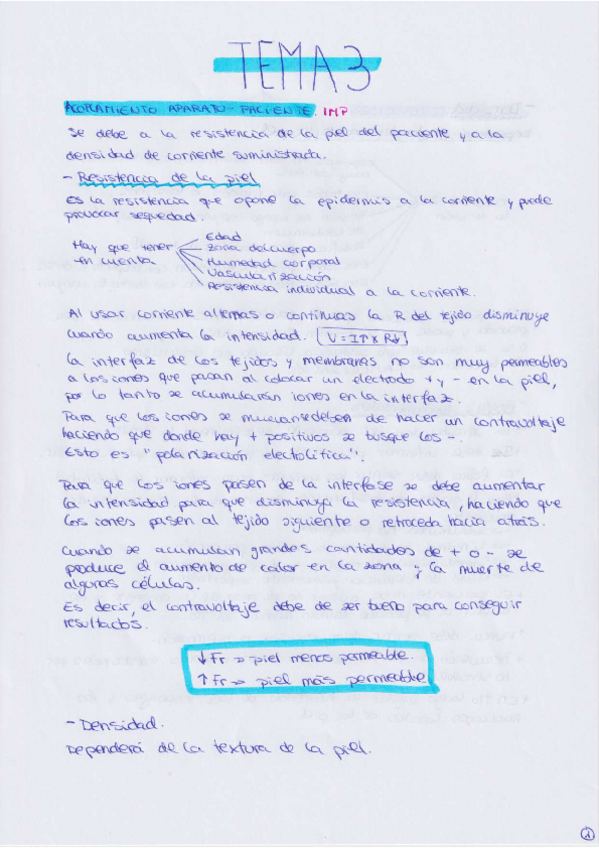 TEMA 3
ACOPLAMIENTO APARATO-PACIENTE. IMP
Se debe a la resistencia de la piel del paciente y a la
densidad de corriente suministrada.
- Resistencia de la piel
Es la resistencia que opone la epidermis a la corriente y puede
provocar sequedad.
Hay que tener en cuenta
Edad
Zona del cuerpo
Humedad corporal
Vascularización
Resistencia individual a la corriente.
Al usar corriente alternas o continuas la R del tejido disminuye
cuando aumenta la intensidad. V = I↑ x R↓
La interfaz de los tejidos y membranas no son muy permeables
a los iones que pasan al colocar un electrodo + y - en la piel,
por lo tanto se acumularán iones en la interfaz.
Para que los iones se muevan se deben de hacer un contravoltaje
haciendo que donde hay + positivos se busque los -.
Esto es "polarización electrolítica".
Para que los iones pasen de la interfase se debe aumentar
la intensidad para que disminuya la resistencia, haciendo que
los iones pasen al tejido siguiente o retroceda hacia atrás.
Cuando se acumulan grandes cantidades de + o - se
produce el aumento de calor en la zona y la muerte de
algunas células.
Es decir, el contravoltaje debe de ser bueno para conseguir
resultados.
↓ Fr => piel menos permeable.
↑ Fr => piel más permeable
- Densidad.
Dependerá de la textura de la piel.
1